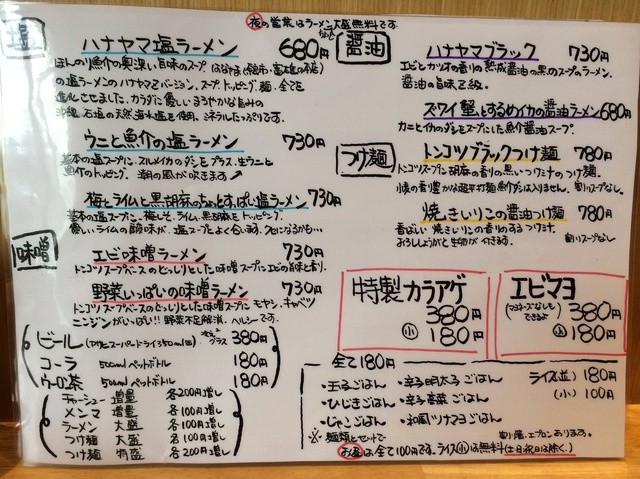 夜の営業はラーメン大盛無料です
塩
ハナヤマ塩ラーメン 680円
ほんのり魚介の奥深い旨味のスープ。
の塩ラーメンのハナヤマバージョン。スープ、トッピング、麺、全てを
進化させました。カラダに優しいまろやかな旨みの
沖縄、石垣の天然海水塩を使用。ミネラルたっぷりです。
ウニと魚介の塩ラーメン 730円
基本の塩スープに、スルメイカのダシをプラス。生ウニと
魚介のトッピング。潮の風が吹きます
梅とライムと黒胡麻のちょっとすっぱい塩ラーメン 730円
基本の塩スープ。梅しそ、ライム、黒胡麻をトッピング。
優しいライムの酸味が、塩スープとよく合います。クセになるかも…
味噌
エビ味噌ラーメン 730円
トンコツスープベースのどっしりとした味噌スープにエビの旨味と香り。
野菜いっぱいの味噌ラーメン 730円
トンコツスープベースのどっしりとした味噌スープに モヤシ、キャベツ
ニンジンがいっぱい!! 野菜不足解消。ヘルシーです。
ビール (アサヒスーパードライ350ml缶) グラス 380円
コーラ 500mlペットボトル 180円
ウーロン茶 500mlペットボトル 180円
チャーシュー 増量 各200円増し
メンマ 増量 各100円増し
ラーメン 大盛 各100円増し
つけ麺 大盛 各100円増し
つけ麺 特盛 各200円増し
醤油
ハナヤマブラック 730円
エビとカツオの香りの熟成醤油の黒のスープのラーメン。
醤油の旨味Z級。
ズワイ蟹とするめイカの醤油ラーメン 680円
カニとイカのダシをスープにした魚介醤油スープ。
つけ麺
トンコツブラックつけ麺 780円
トンコツスープ胡麻の香りの黒いスープのつけ麺。
割りスープなし
焼きいりこの醤油つけ麺 780円
香ばしい焼きいりこの香りのするつけ汁。
割りスープなし
特製カラアゲ
380円
小 180円
エビマヨ
(マヨネーズなしもできるよ) 380円
小 180円
全て180円
・玉子ごはん ・辛子明太子ごはん
・ひじきごはん ・辛子高菜ごはん
・じゃこごはん ・和風ツナマヨごはん
ライス(並) 180円
(小) 100円
※麺類とセットで
お昼は全て100円です。ライス小は無料(土日祝日は除く。)
紙エプロンあります。